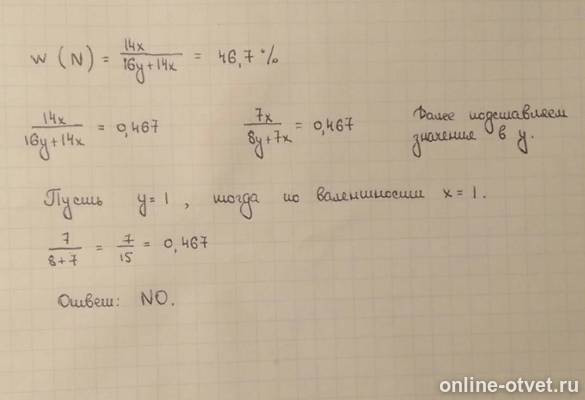 w (N) = 14x / 16y + 14x = 46,7 %
14x / 16y + 14x = 0,467
7x / 8y + 7x = 0,467
Далее подставляем
значение в y.
Пусть y = 1 , тогда по валентности x = 1.
7 / 8 + 7 = 7 / 15 = 0,467
Ответ: NO.
online-otvet.ru